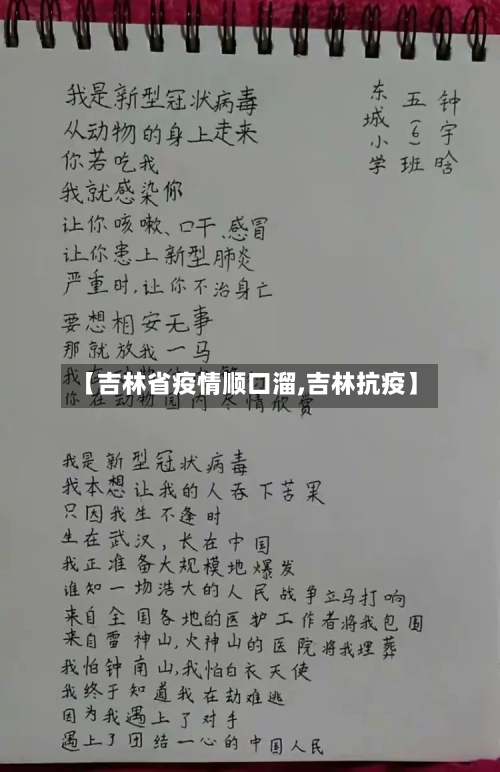 我是新型冠状病毒
从动物的身上走来
你若吃我
我就感染你
让你咳嗽、口干、感冒
让你患上新型肺炎
严重时,让你不治身亡
要想相安无事
那就放我一马
我
你在动物园内尽情欣赏
东城小学
五(6)班
钟宇晗
【吉林省疫情顺口溜,吉林抗疫】
我是新型冠状病毒
我本想让我的人吞下苦果
只因我生不逢时
生在武汉,长在中国
我正准备大规模地爆发
谁知一场浩大的人民战争立马打响
来自全国各地的医护工作者将我包围
来自雷神山,火神山的医院将我埋葬
我怕钟南山,我怕白衣天使
我终于知道我在劫难逃
因为我遇上了对手
遇上了团结一心的中国人民